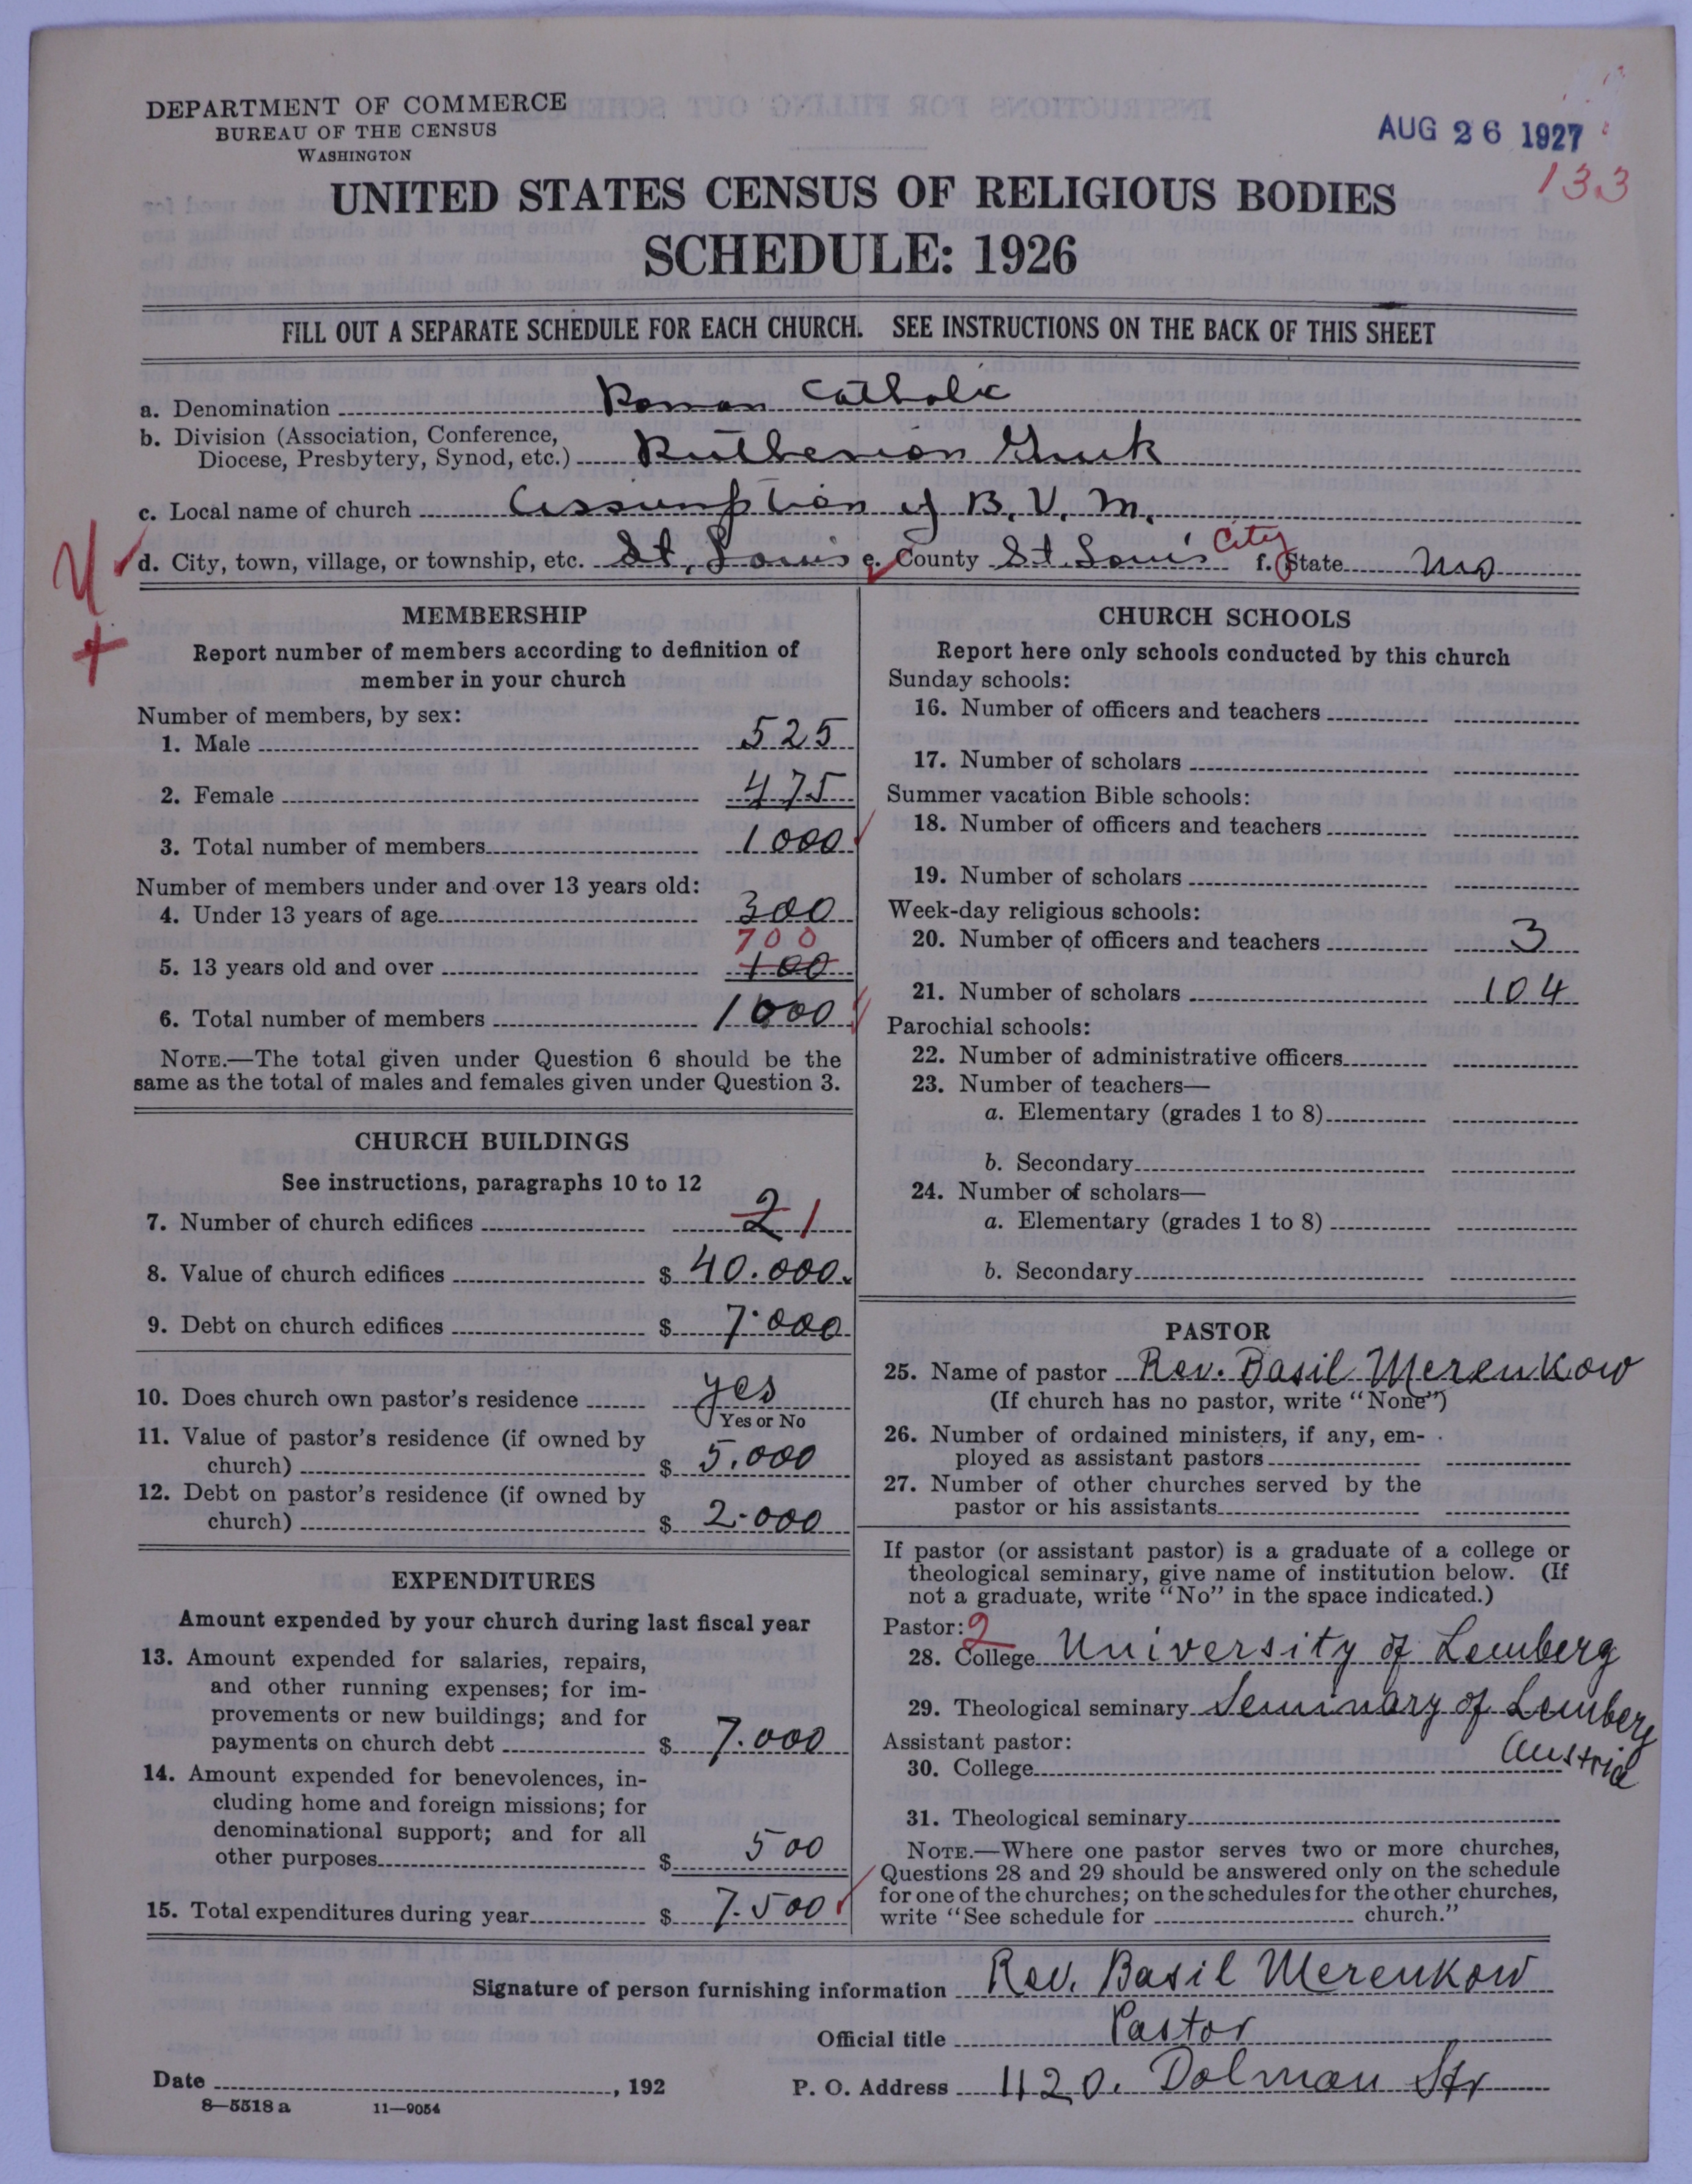 DEPARTMENT OF COMMERCE
BUREAU OF THE CENSUS
WASHINGTON
AUG 26 1927
133
UNITED STATES CENSUS OF RELIGIOUS BODIES
SCHEDULE: 1926
FILL OUT A SEPARATE SCHEDULE FOR EACH CHURCH. SEE INSTRUCTIONS ON THE BACK OF THIS SHEET
a. Denomination Roman Catholic
b. Division (Association, Conference,
Diocese, Presbytery, Synod, etc.) Ruthenian Greek
c. Local name of church Assumption of B. V. M.
d. City, town, village, or township, etc. St. Louis e. County St. Louis City f. State Mo
MEMBERSHIP
Report number of members according to definition of
member in your church
Number of members, by sex:
1. Male 525
2. Female 475
3. Total number of members 1000
Number of members under and over 13 years old:
4. Under 13 years of age 300
700
5. 13 years old and over 100
6. Total number of members 1000
NOTE.—The total given under Question 6 should be the
same as the total of males and females given under Question 3.
CHURCH BUILDINGS
See instructions, paragraphs 10 to 12
7. Number of church edifices 2 1
8. Value of church edifices $ 40.000.
9. Debt on church edifices $ 7.000
10. Does church own pastor's residence yes
Yes or No
11. Value of pastor's residence (if owned by
church) $ 5.000
12. Debt on pastor's residence (if owned by
church) $ 2.000
EXPENDITURES
Amount expended by your church during last fiscal year
13. Amount expended for salaries, repairs,
and other running expenses; for im-
provements or new buildings; and for
payments on church debt $ 7.000
14. Amount expended for benevolences, in-
cluding home and foreign missions; for
denominational support; and for all
other purposes $ 500
15. Total expenditures during year $ 7.500
CHURCH SCHOOLS
Report here only schools conducted by this church
Sunday schools:
16. Number of officers and teachers
17. Number of scholars
Summer vacation Bible schools:
18. Number of officers and teachers
19. Number of scholars
Week-day religious schools:
20. Number of officers and teachers 3
21. Number of scholars 104
Parochial schools:
22. Number of administrative officers
23. Number of teachers—
a. Elementary (grades 1 to 8)
b. Secondary
24. Number of scholars—
a. Elementary (grades 1 to 8)
b. Secondary
PASTOR
25. Name of pastor Rev. Basil Merenkow
(If church has no pastor, write "None")
26. Number of ordained ministers, if any, em-
ployed as assistant pastors
27. Number of other churches served by the
pastor or his assistants
If pastor (or assistant pastor) is a graduate of a college or
theological seminary, give name of institution below. (If
not a graduate, write "No" in the space indicated.)
Pastor: 2
28. College University of Lemberg
29. Theological seminary Seminary of Lemberg
Austria
Assistant pastor:
30. College
31. Theological seminary
NOTE.—Where one pastor serves two or more churches,
Questions 28 and 29 should be answered only on the schedule
for one of the churches; on the schedules for the other churches,
write "See schedule for church."
Signature of person furnishing information Rev. Basil Merenkow
Official title Pastor
Date , 192 P. O. Address 1120. Dolman Str
8—5518 a 11—9054